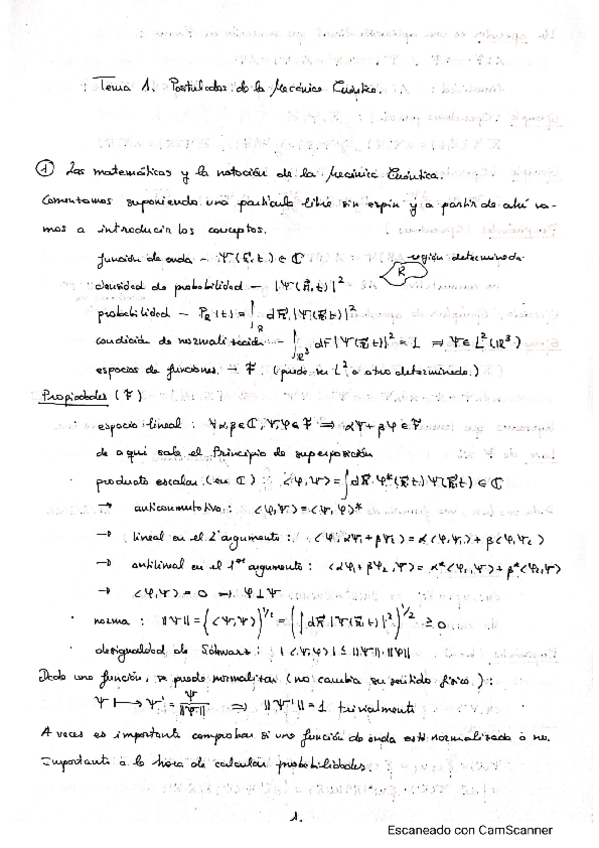 Tema 1. Postulados de la Mecánica Cuántica.
① Las matemáticas y la notación de la Mecánica Cuántica.
Comentamos suponiendo una partícula libre sin espín y a partir de ahí va-
mos a introducir los conceptos.
función de onda - Ψ(r⃗,t) ∈ ℂ
región determinada
R
densidad de probabilidad - |Ψ(r⃗,t)|²
probabilidad - P_R(t) = ∫_R dr⃗ |Ψ(r⃗,t)|²
condición de normalización - ∫_ℝ³ dr⃗ |Ψ(r⃗,t)|² = 1 ⇒ Ψ ∈ L²(ℝ³)
espacios de funciones - F (puede ser L² o otro determinado.)
Propiedades (F)
· espacio lineal: ∀α,β ∈ ℂ, Ψ,φ ∈ F ⇒ αΨ + βφ ∈ F
de aquí sale el Principio de superposición
· producto escalar (en ℂ): <φ,Ψ> = ∫ dr⃗ φ*(r⃗,t) Ψ(r⃗,t) ∈ ℂ
→ anticonmutativo: <φ,Ψ> = <Ψ,φ>*
→ lineal en el 2º argumento: <φ, αΨ₁+βΨ₂> = α<φ,Ψ₁> + β<φ,Ψ₂>
→ antilineal en el 1er argumento: <αφ₁+βφ₂,Ψ> = α*<φ₁,Ψ> + β*<φ₂,Ψ>
→ <φ,Ψ> = 0 ⇒ φ⊥Ψ
· norma: ||Ψ|| = (<Ψ,Ψ>)^1/2 = (∫ dr⃗ |Ψ(r⃗,t)|²)^1/2 ≥ 0
· desigualdad de Schwarz: |<Ψ,φ>| ≤ ||Ψ||·||φ||
Dada una función, se puede normalizar (no cambia su sentido físico):
Ψ ⟼ Ψ' = Ψ/||Ψ|| ⇒ ||Ψ'|| = 1 trivialmente
A veces es importante comprobar si una función de onda está normalizada o no.
Importante a la hora de calcular probabilidades.
1.
Escaneado con CamScanner